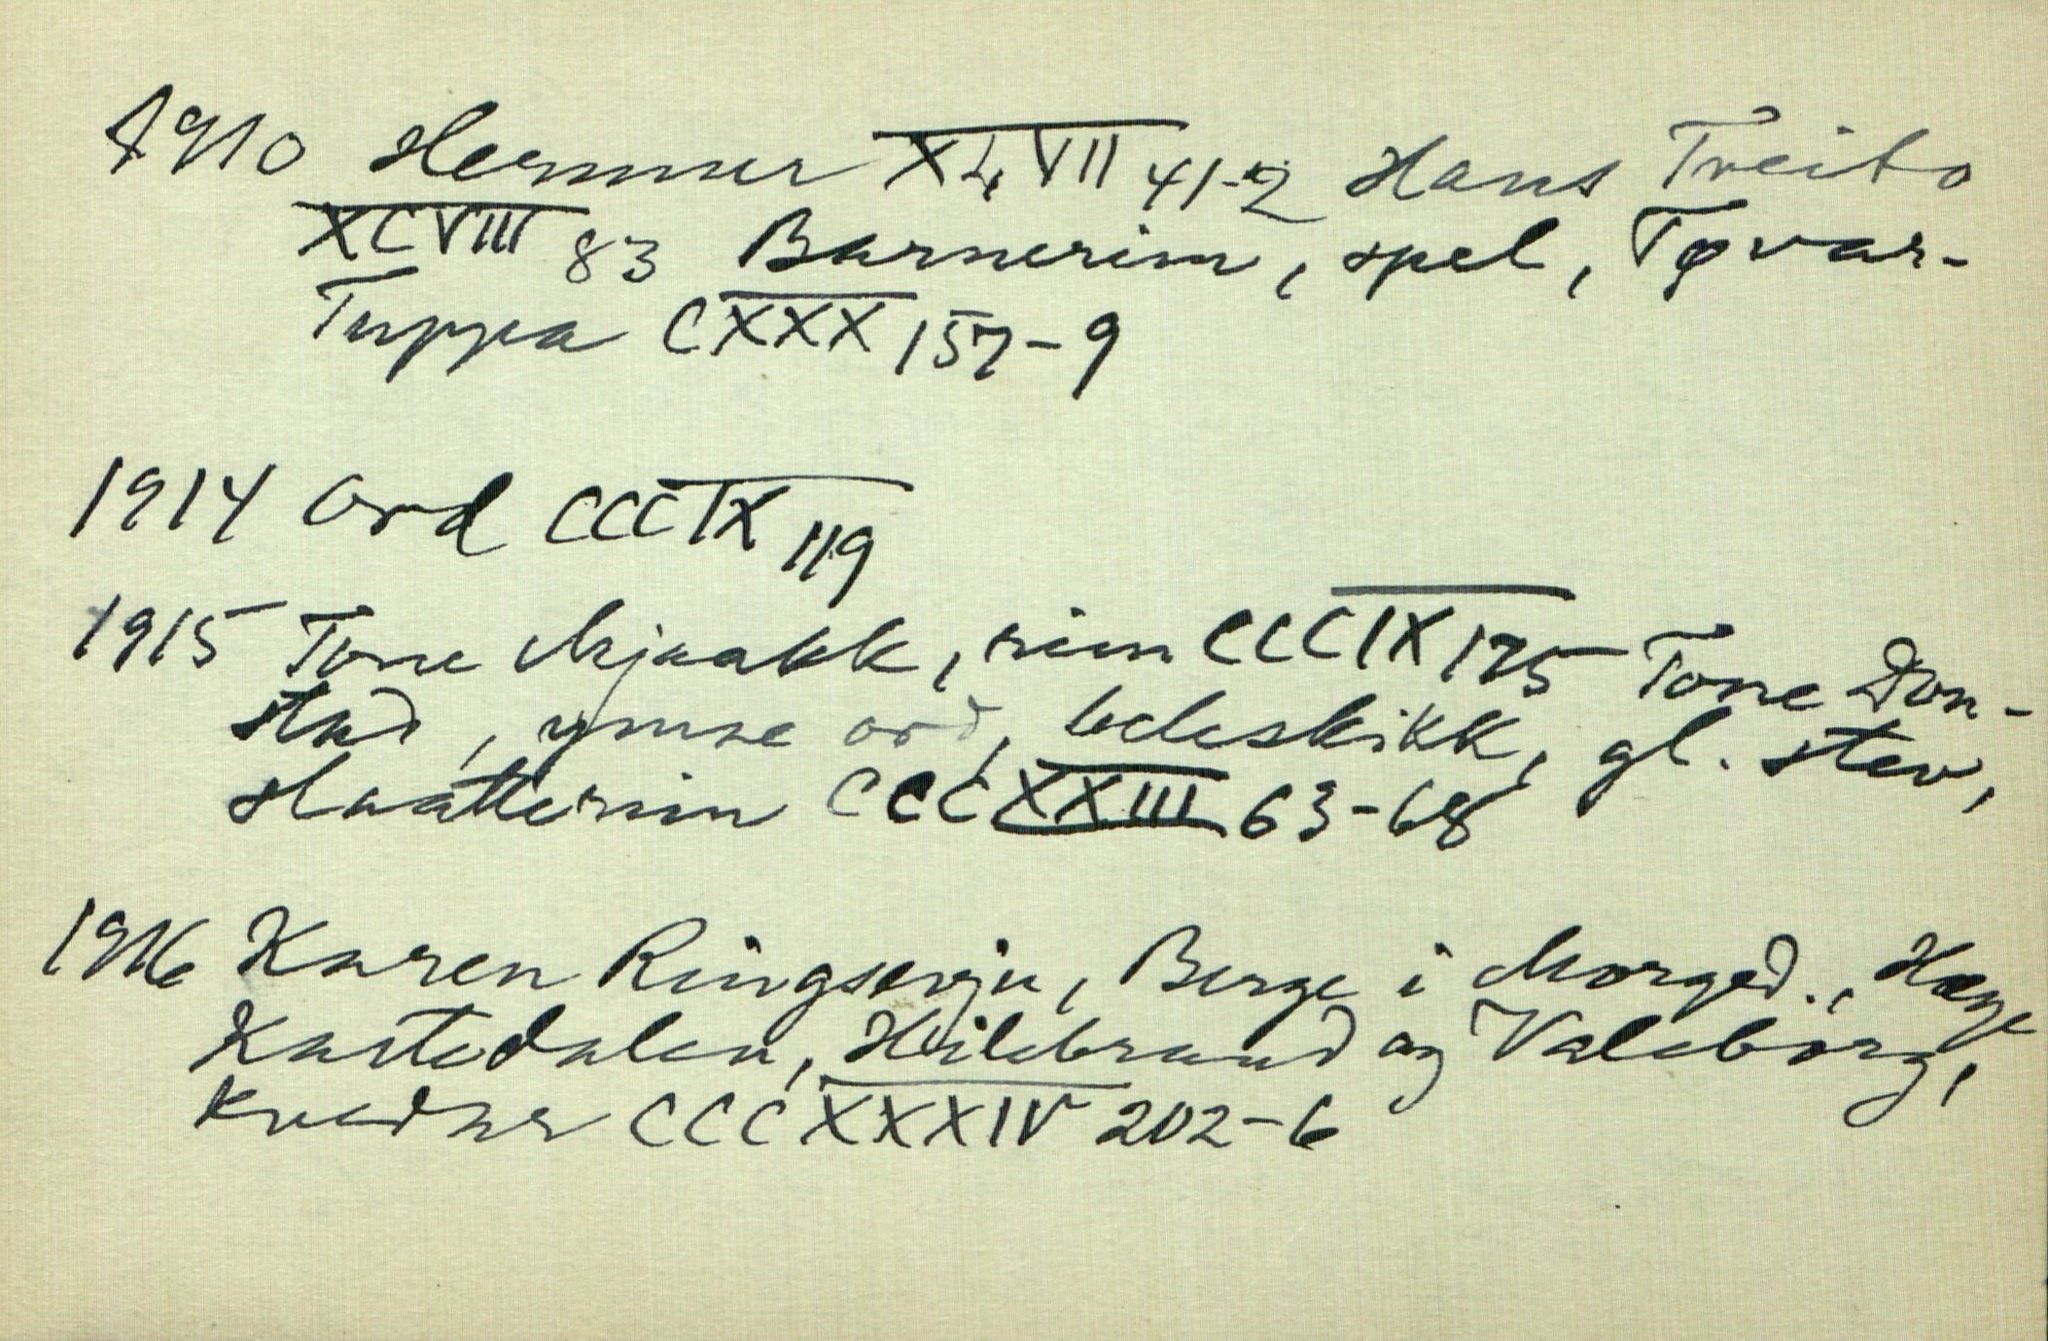 1910 Hermur XLVII 41-2 Hans Treito
XCVIII 83 Barnerim, spel, Tøvar-
Tuppa CXXX 157-9
1914 Ord CCCIX 119
1915 Tone Mjaakk, rim CCCIX 175 Tone Don-
stad, ymse ord, beleskikk, gl. stev,
slaatterim CCCXXIII 63-68
1916 Karen Ringserju, Berge i Morged., Hæge
Kastedalen, Hilebrand og Valeborg,
Kvedar CCCXXXIV 202-6